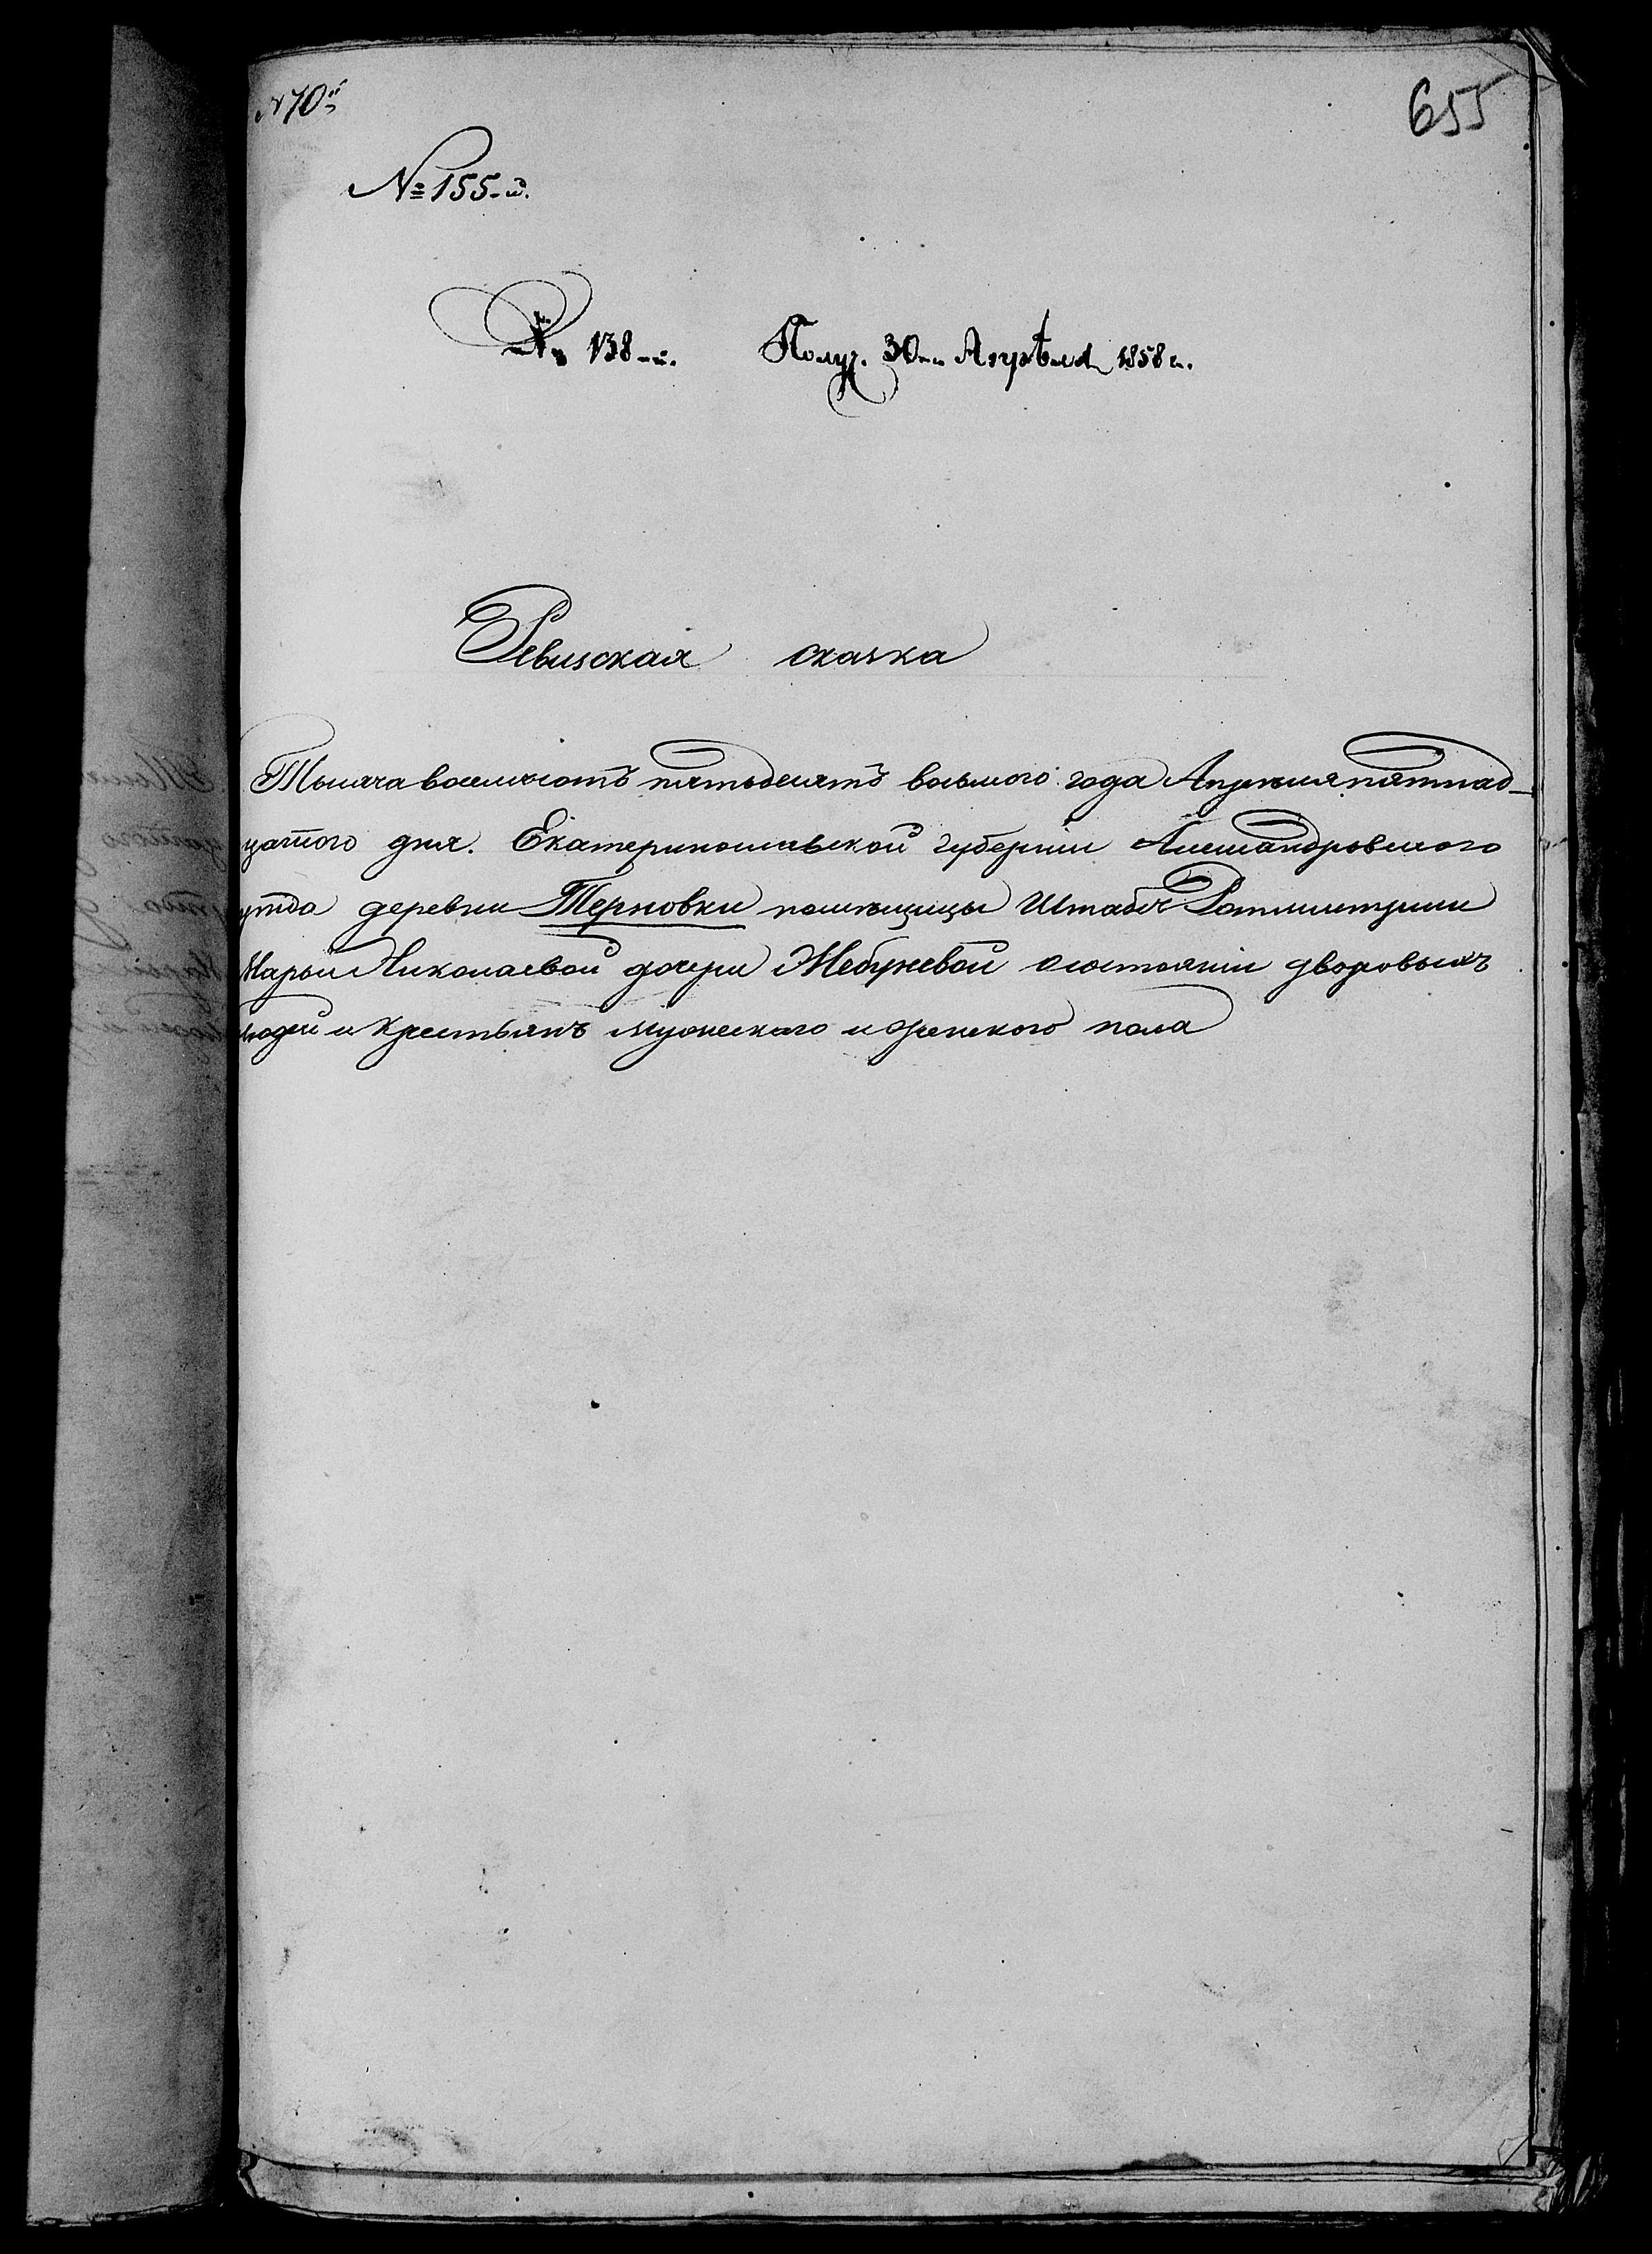 № 10й
655
№ 155-й.
№ 138-й. Получ. 30го Апрѣля 1858 г.
Ревизская сказка
Тысяча восемьсотъ пятьдесятъ восьмого года Апреля пятнад-
цатого дня. Екатеринославской губерніи Александровского
уѣзда деревни Терновки помѣщицы Штабсъ Ротмистрши
Марьи Николаевой дочери о состояніи дворовыхъ
людей и крестьянъ мужескаго и женского пола